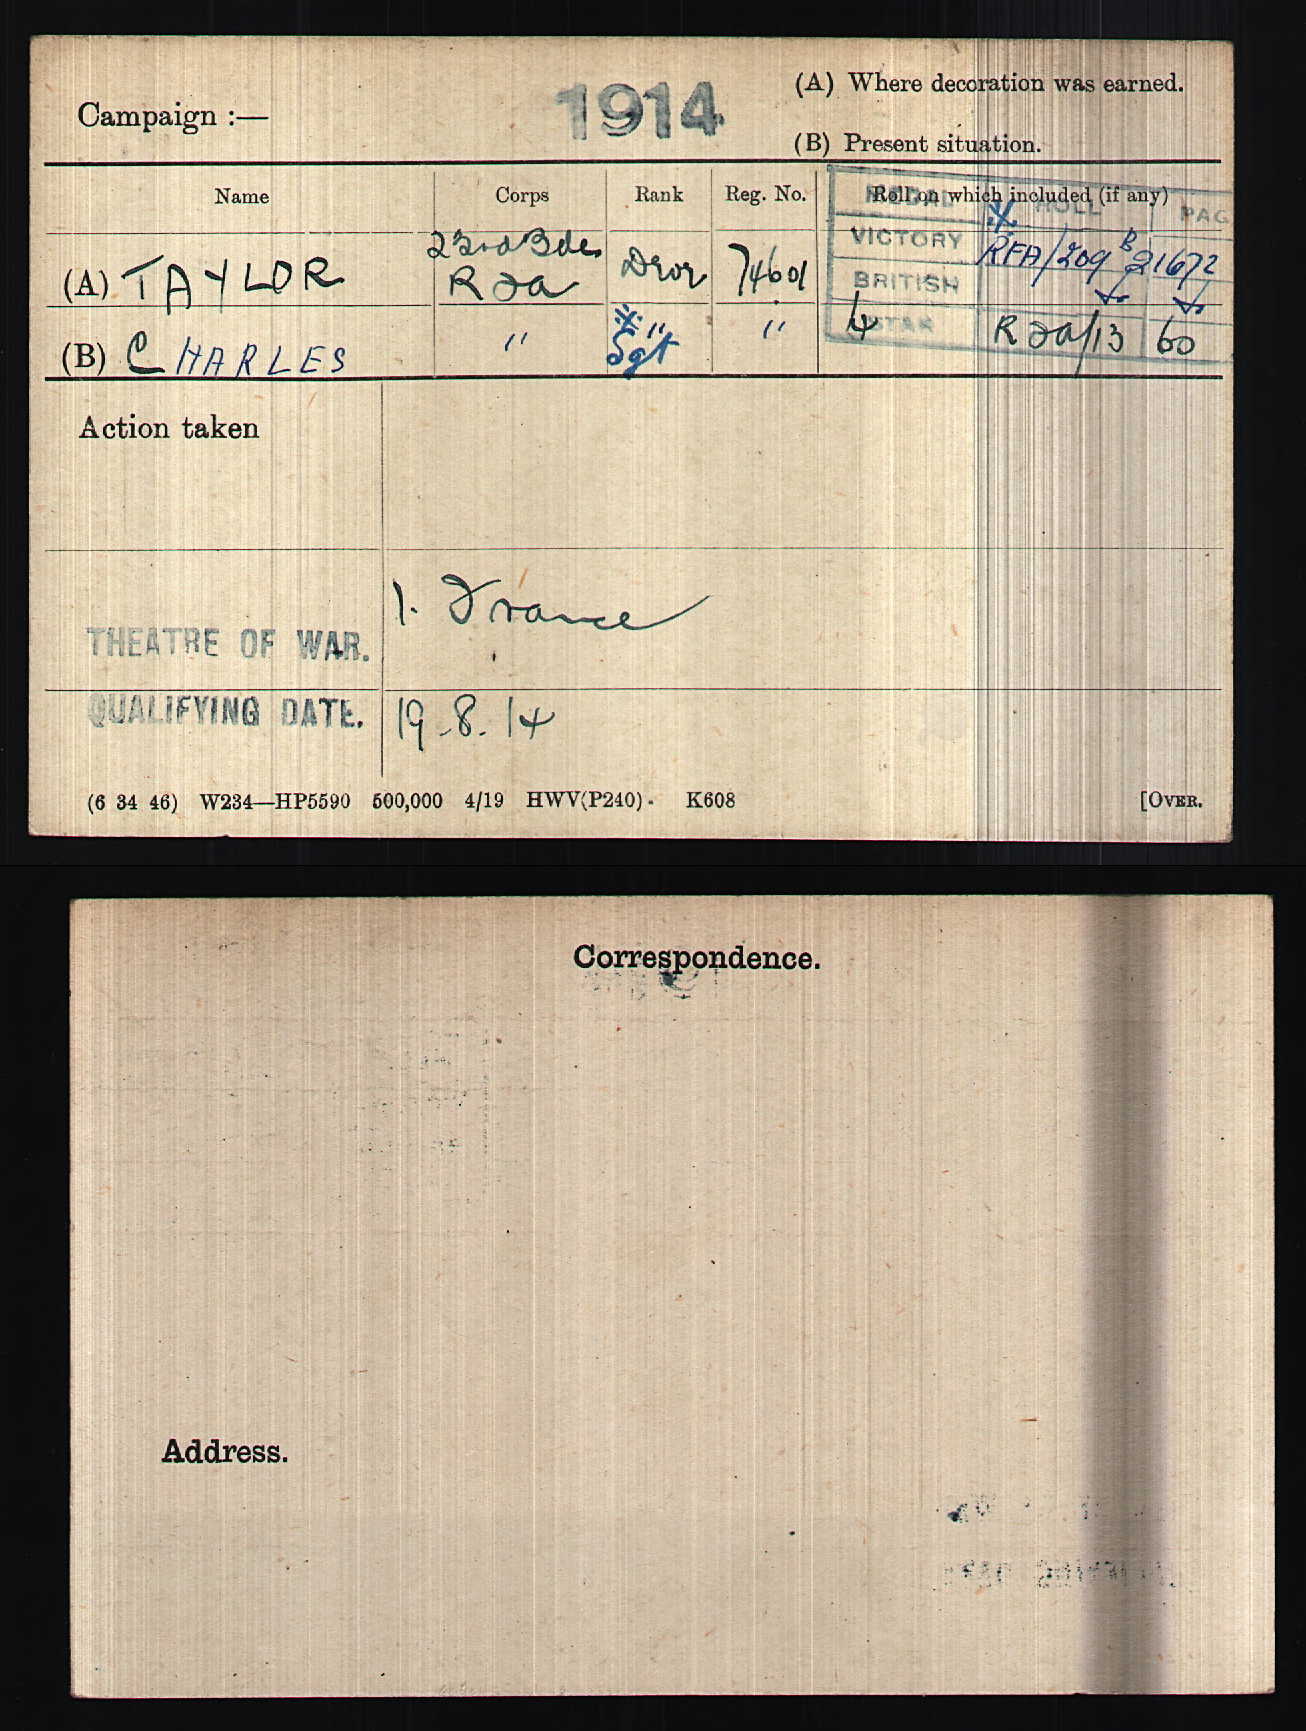 Campaign :—
1914
(A) Where decoration was earned.
(B) Present situation.
Name Corps Rank Reg. No. Roll on which included (if any)
MEDAL ROLL PAG
23rd Bde
(A) TAYLOR RFA Dvr 74601 VICTORY RFA/209B 21672
BRITISH
(B) CHARLES " " " STAR RFA/13 60
Sgt
Action taken
THEATRE OF WAR. 1. France
QUALIFYING DATE. 19.8.14
(6 34 46) W234—HP5590 500,000 4/19 HWV(P240) K608 [OVER.
Correspondence.
Address.